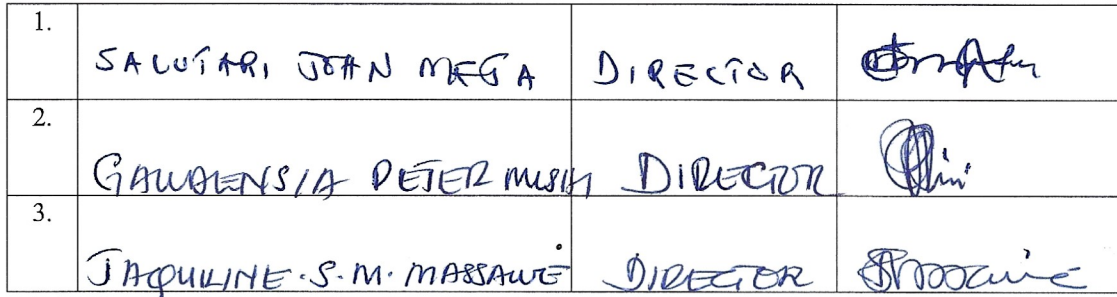 1. SALUTARI JOHN MEGA DIRECTOR
2. GAUDENSIA PETER MUSHI DIRECTOR
3. JAQULINE.S.M. MASSAWE DIRECTOR